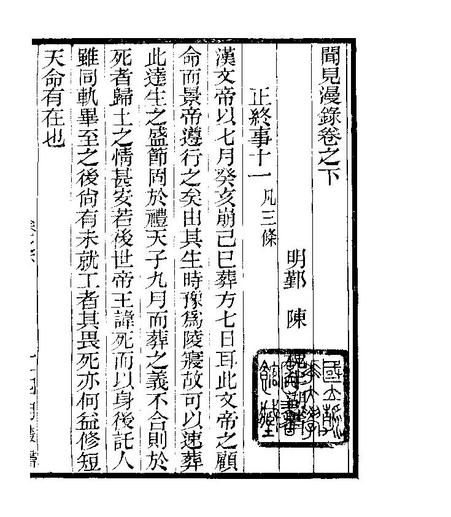 聞見漫錄卷之下
明鄞 陳
正終事十一 凡三條
漢文帝以七月癸亥崩己巳葬方七日耳此文帝之顧
命而景帝遵行之矣由其生時豫爲陵寢故可以速葬
此達生之盛節固於禮天子九月而葬之義不合則於
死者歸土之情甚安若後世帝王諱死而以身後託人
雖同軌畢至之後尚有未就工者其畏死亦何益修短
天命有在也